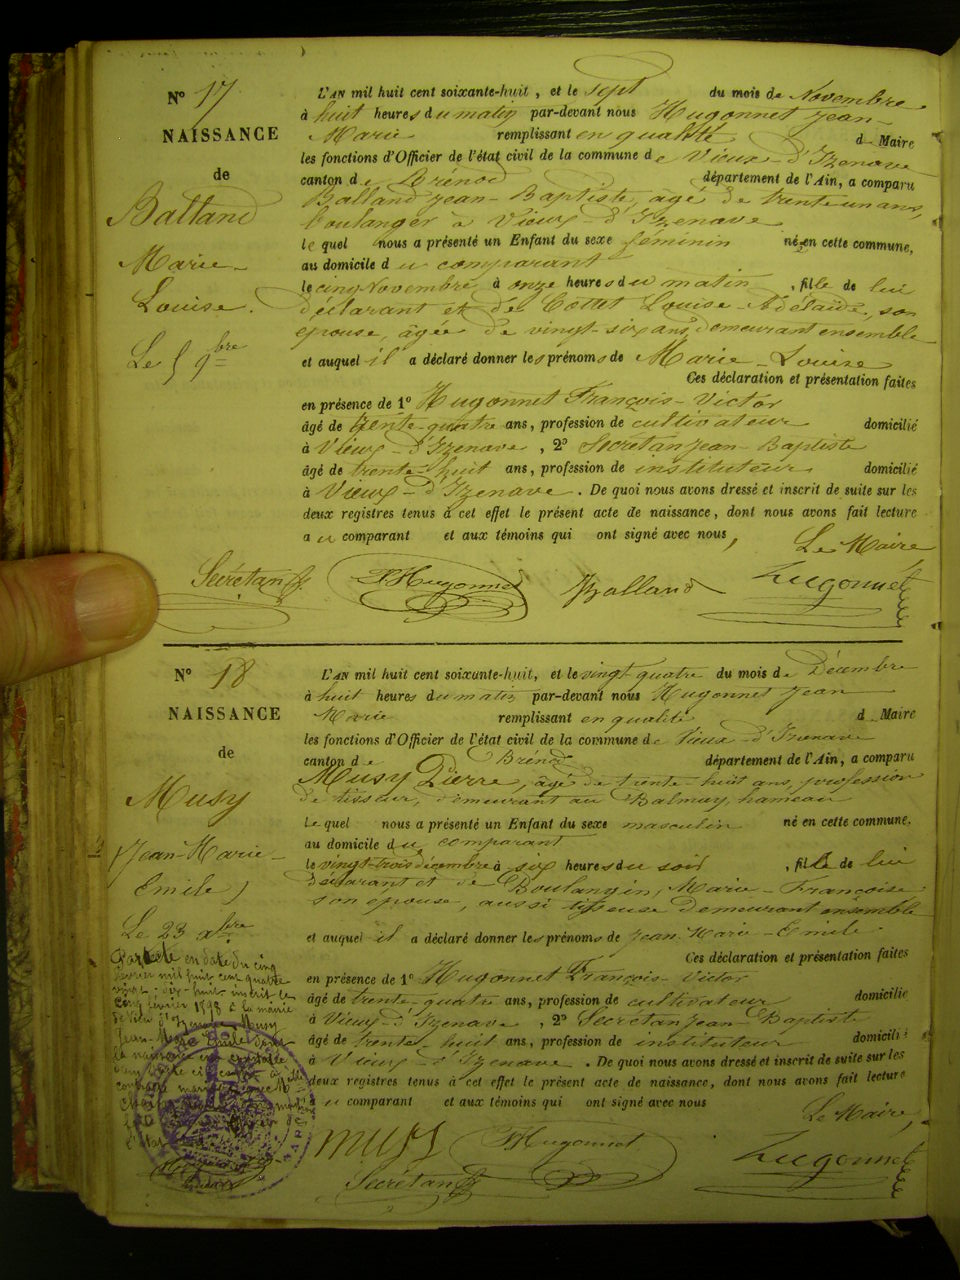 N° 17
NAISSANCE
de
Balland
Marie-
Louise.
Le 5 9bre
L'AN mil huit cent soixante-huit, et le sept du mois de Novembre
à huit heures du matin par-devant nous Hugonnet Jean-
Marie remplissant en qualité de Maire
les fonctions d'Officier de l'état civil de la commune de Vieux-d'Izenave
canton de Brénod département de l'Ain, a comparu
Balland Jean-Baptiste, âgé de trente un ans,
boulanger à Vieux-d'Izenave
le quel nous a présenté un Enfant du sexe féminin née en cette commune,
au domicile du comparant
le cinq Novembre, à onze heures du matin, fille de lui
déclarant et de Cottet Louise-Adélaïde, son
épouse, âgée de vingt-six ans, demeurant ensemble
et auquel il a déclaré donner les prénoms de Marie-Louise
Ces déclaration et présentation faites
en présence de 1° Hugonnet François-Victor
âgé de trente-quatre ans, profession de cultivateur domicilié
à Vieux-d'Izenave, 2° Secrétan Jean-Baptiste
âgé de trente-huit ans, profession de instituteur domicilié
à Vieux-d'Izenave. De quoi nous avons dressé et inscrit de suite sur les
deux registres tenus à cet effet le présent acte de naissance, dont nous avons fait lecture
au comparant et aux témoins qui ont signé avec nous,
Le Maire
Secrétan Hugonnet Balland Hugonnet
N° 18
NAISSANCE
de
Musy
Jean-Marie-
Emile
Le 23 Xbre
L'AN mil huit cent soixante-huit, et le vingt quatre du mois de Décembre
à huit heures du matin, par-devant nous Hugonnet Jean
Marie remplissant en qualité de Maire
les fonctions d'Officier de l'état civil de la commune de Vieux-d'Izenave
canton de Brénod département de l'Ain, a comparu
Musy Pierre, âgé de trente-huit ans, profession
de tisseur, demeurant au Balmay, hameau
Le quel nous a présenté un Enfant du sexe masculin né en cette commune.
au domicile du comparant
le vingt-trois décembre à six heures du soir, fils de lui
déclarant et de Boulangin, Marie-Françoise
son épouse, aussi tisseuse demeurant ensemble
et auquel il a déclaré donner les prénoms de Jean-Marie-Emile
Ces déclaration et présentation faites
en présence de 1° Hugonnet François-Victor
âgé de trente-quatre ans, profession de cultivateur domicilié
à Vieux-d'Izenave, 2° Secrétan Jean-Baptiste
âgé de trente-huit ans, profession de instituteur domicilié
à Vieux d'Izenave. De quoi nous avons dressé et inscrit de suite sur les
deux registres tenus à cet effet le présent acte de naissance, dont nous avons fait lecture
au comparant et aux témoins qui ont signé avec nous
Le Maire,
Musy Hugonnet Hugonnet
Secrétan
Par acte en date du cinq
février mil huit cent quatre
vingt-dix-huit inscrit le
cinq février 1898 à la mairie
de Vieux d'Izenave Musy
Jean-Marie Emile dont
la naissance est constatée